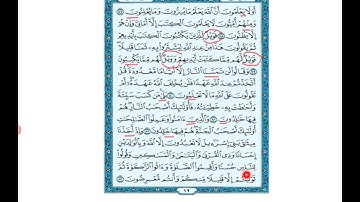 أَوَلَا يَعْلَمُونَ أَنَّ ٱللَّهَ يَعْلَمُ مَا يُسِرُّونَ وَمَا يُعْلِنُونَ ٧٧
وَمِنْهُمْ أُمِّيُّونَ لَا يَعْلَمُونَ ٱلْكِتَٰبَ إِلَّآ أَمَانِىَّ وَإِنْ هُمْ
إِلَّا يَظُنُّونَ ٧٨ فَوَيْلٌ لِّلَّذِينَ يَكْتُبُونَ ٱلْكِتَٰبَ بِأَيْدِيهِمْ
ثُمَّ يَقُولُونَ هَٰذَا مِنْ عِندِ ٱللَّهِ لِيَشْتَرُوا۟ بِهِۦ ثَمَنًا قَلِيلًا
فَوَيْلٌ لَّهُم مِّمَّا كَتَبَتْ أَيْدِيهِمْ وَوَيْلٌ لَّهُم مِّمَّا يَكْسِبُونَ
٧٩ وَقَالُوا۟ لَن تَمَسَّنَا ٱلنَّارُ إِلَّآ أَيَّامًا مَّعْدُودَةً قُلْ
أَتَّخَذْتُمْ عِندَ ٱللَّهِ عَهْدًا فَلَن يُخْلِفَ ٱللَّهُ عَهْدَهُۥٓ أَمْ
تَقُولُونَ عَلَى ٱللَّهِ مَا لَا تَعْلَمُونَ ٨٠ بَلَىٰ مَن كَسَبَ سَيِّئَةً
وَأَحَٰطَتْ بِهِۦ خَطِيٓـَٔتُهُۥ فَأُو۟لَٰٓئِكَ أَصْحَٰبُ ٱلنَّارِ هُمْ
فِيهَا خَٰلِدُونَ ٨١ وَٱلَّذِينَ ءَامَنُوا۟ وَعَمِلُوا۟ ٱلصَّٰلِحَٰتِ
أُو۟لَٰٓئِكَ أَصْحَٰبُ ٱلْجَنَّةِ هُمْ فِيهَا خَٰلِدُونَ ٨٢ وَإِذْ أَخَذْنَا
مِيثَٰقَ بَنِىٓ إِسْرَٰٓءِيلَ لَا تَعْبُدُونَ إِلَّا ٱللَّهَ وَبِٱلْوَٰلِدَيْنِ
إِحْسَانًا وَذِى ٱلْقُرْبَىٰ وَٱلْيَتَٰمَىٰ وَٱلْمَسَٰكِينِ وَقُولُوا۟
لِلنَّاسِ حُسْنًا وَأَقِيمُوا۟ ٱلصَّلَوٰةَ وَءَاتُوا۟ ٱلزَّكَوٰةَ ثُمَّ
تَوَلَّيْتُمْ إِلَّا قَلِيلًا مِّنكُمْ وَأَنتُم مُّعْرِضُونَ ٨٣
١٢